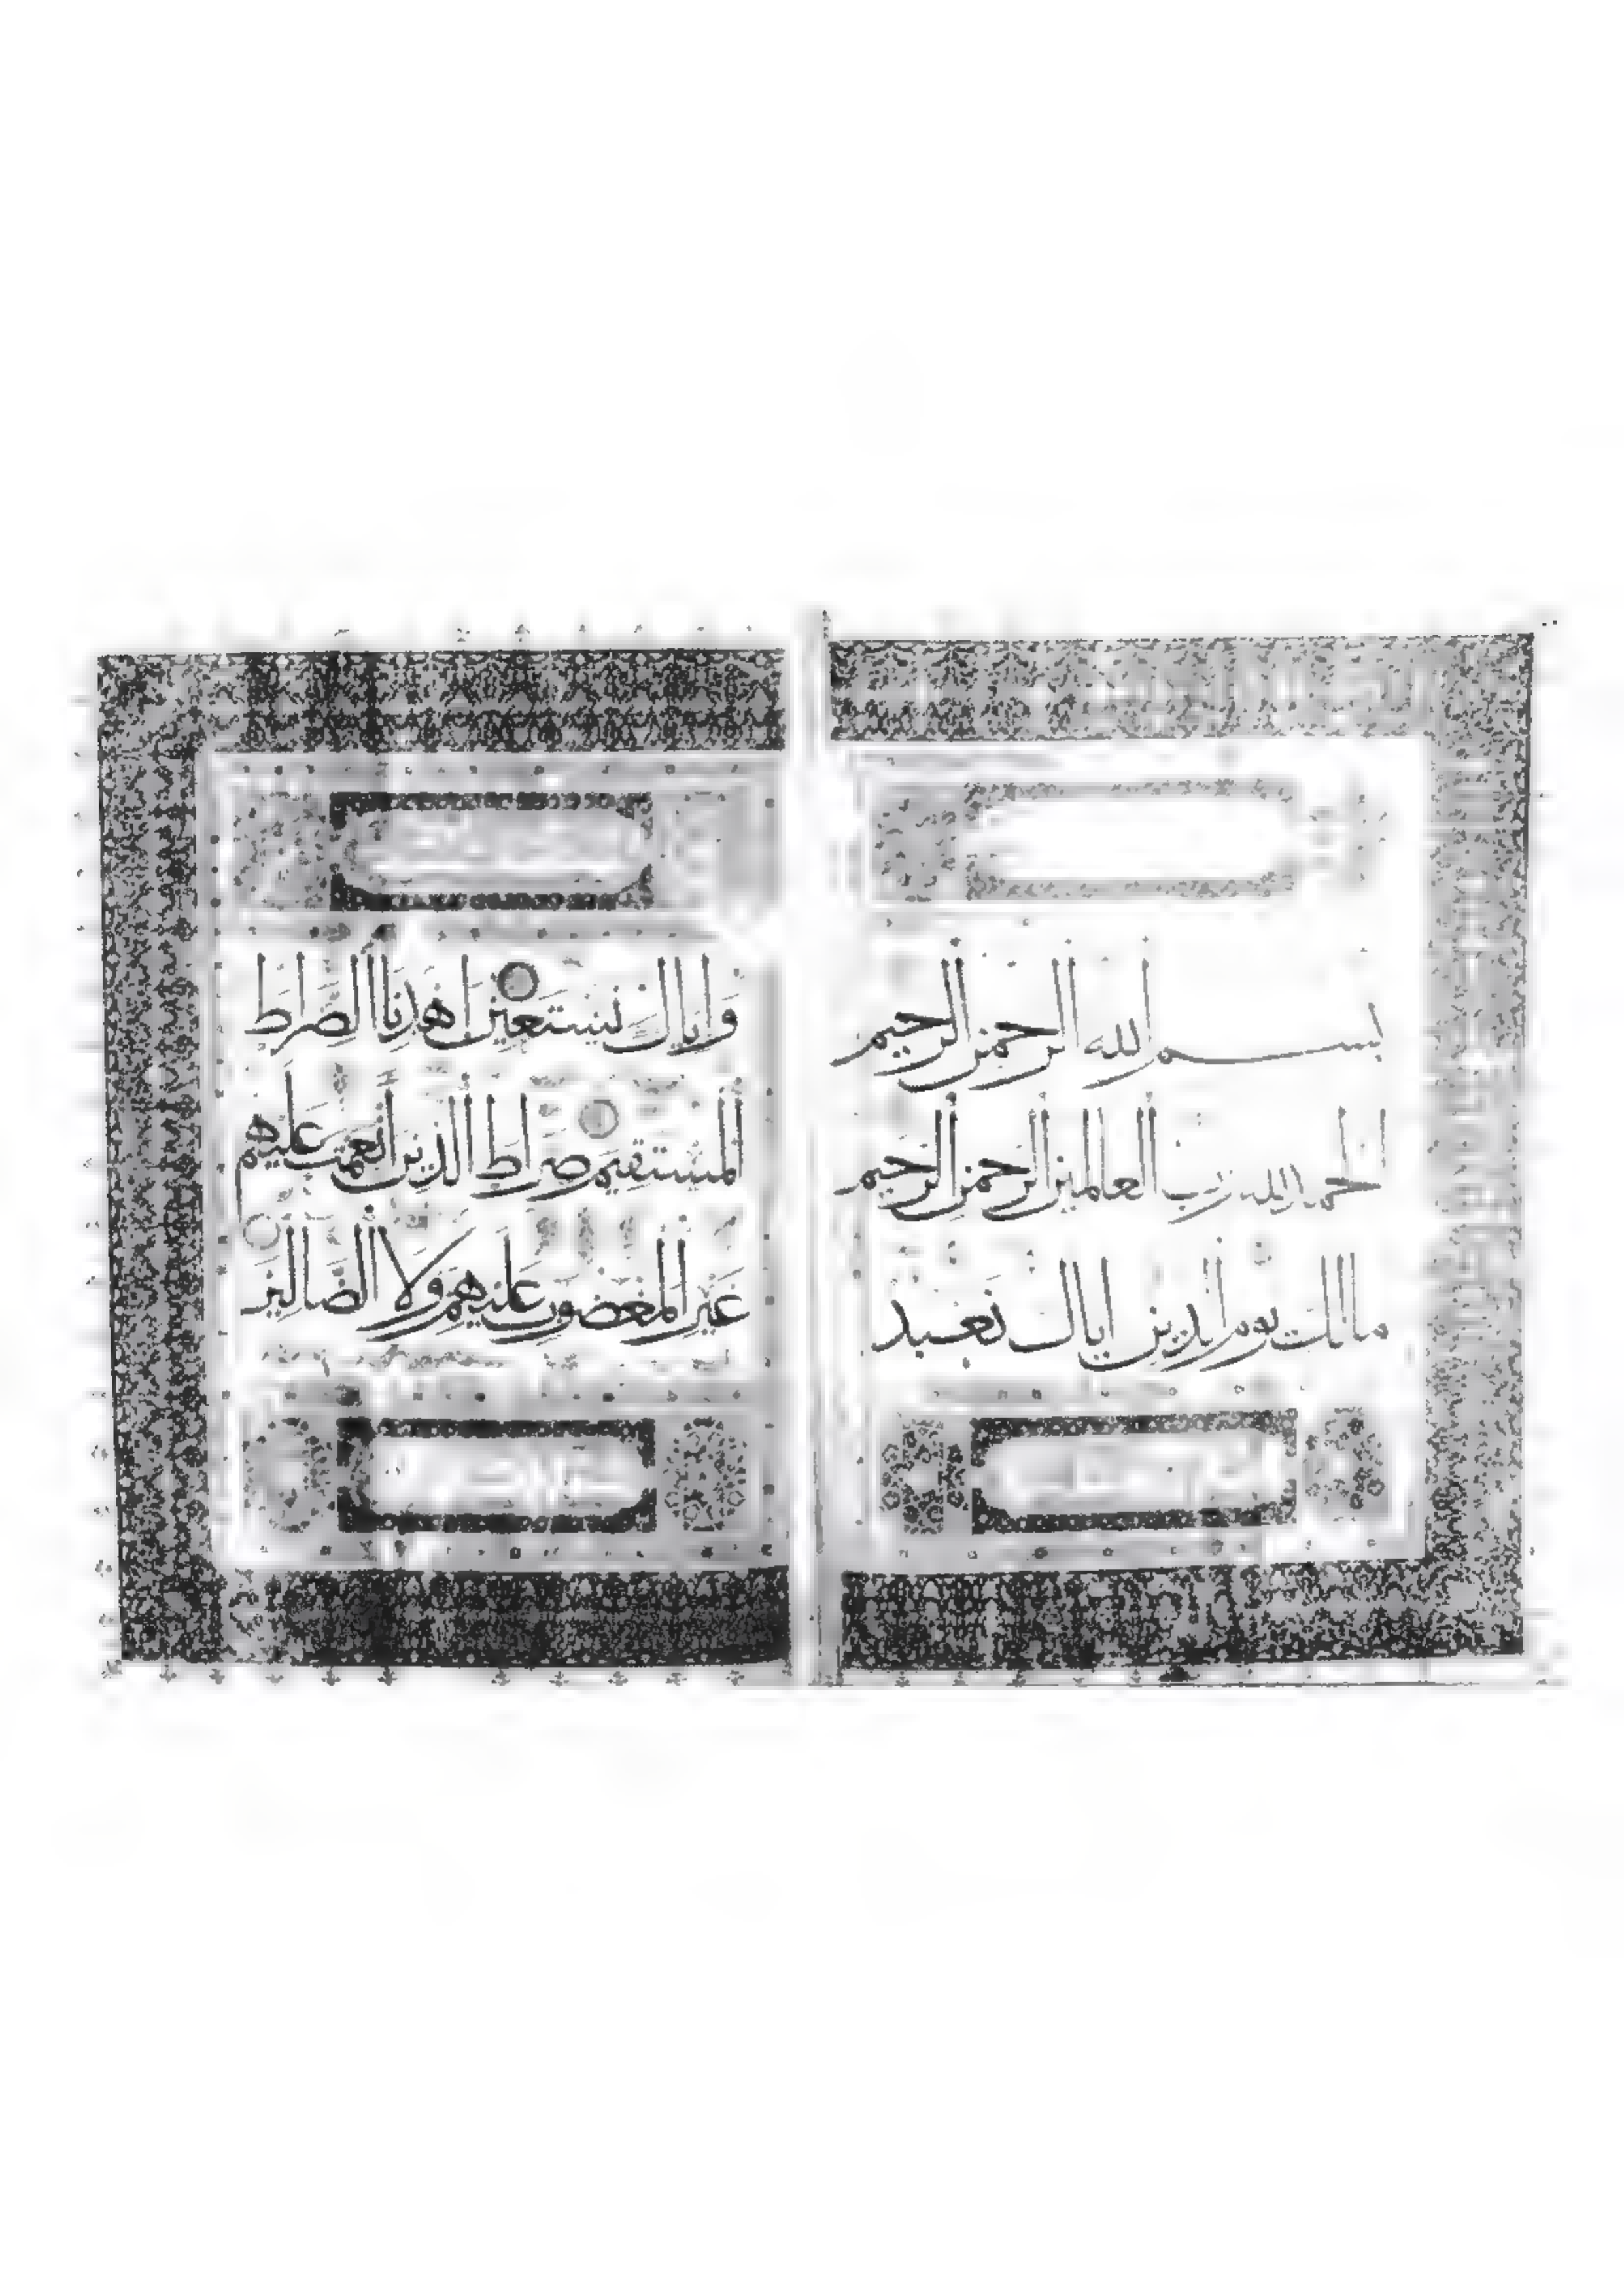 بسم الله الرحمن الرحيم
الحمد لله رب العالمين الرحمن الرحيم
مالك يوم الدين اياك نعبد
وَاِيَاكَ نَسْتَعِين اهْدِنَا الصِّرَاطَ
المُسْتَقِيم صِرَاطَ الَّذِينَ أَنْعَمْتَ عَلَيْهِم
غَيْرِ المَغْضُوبِ عَلَيْهِم وَلَا الضَّالِينَ